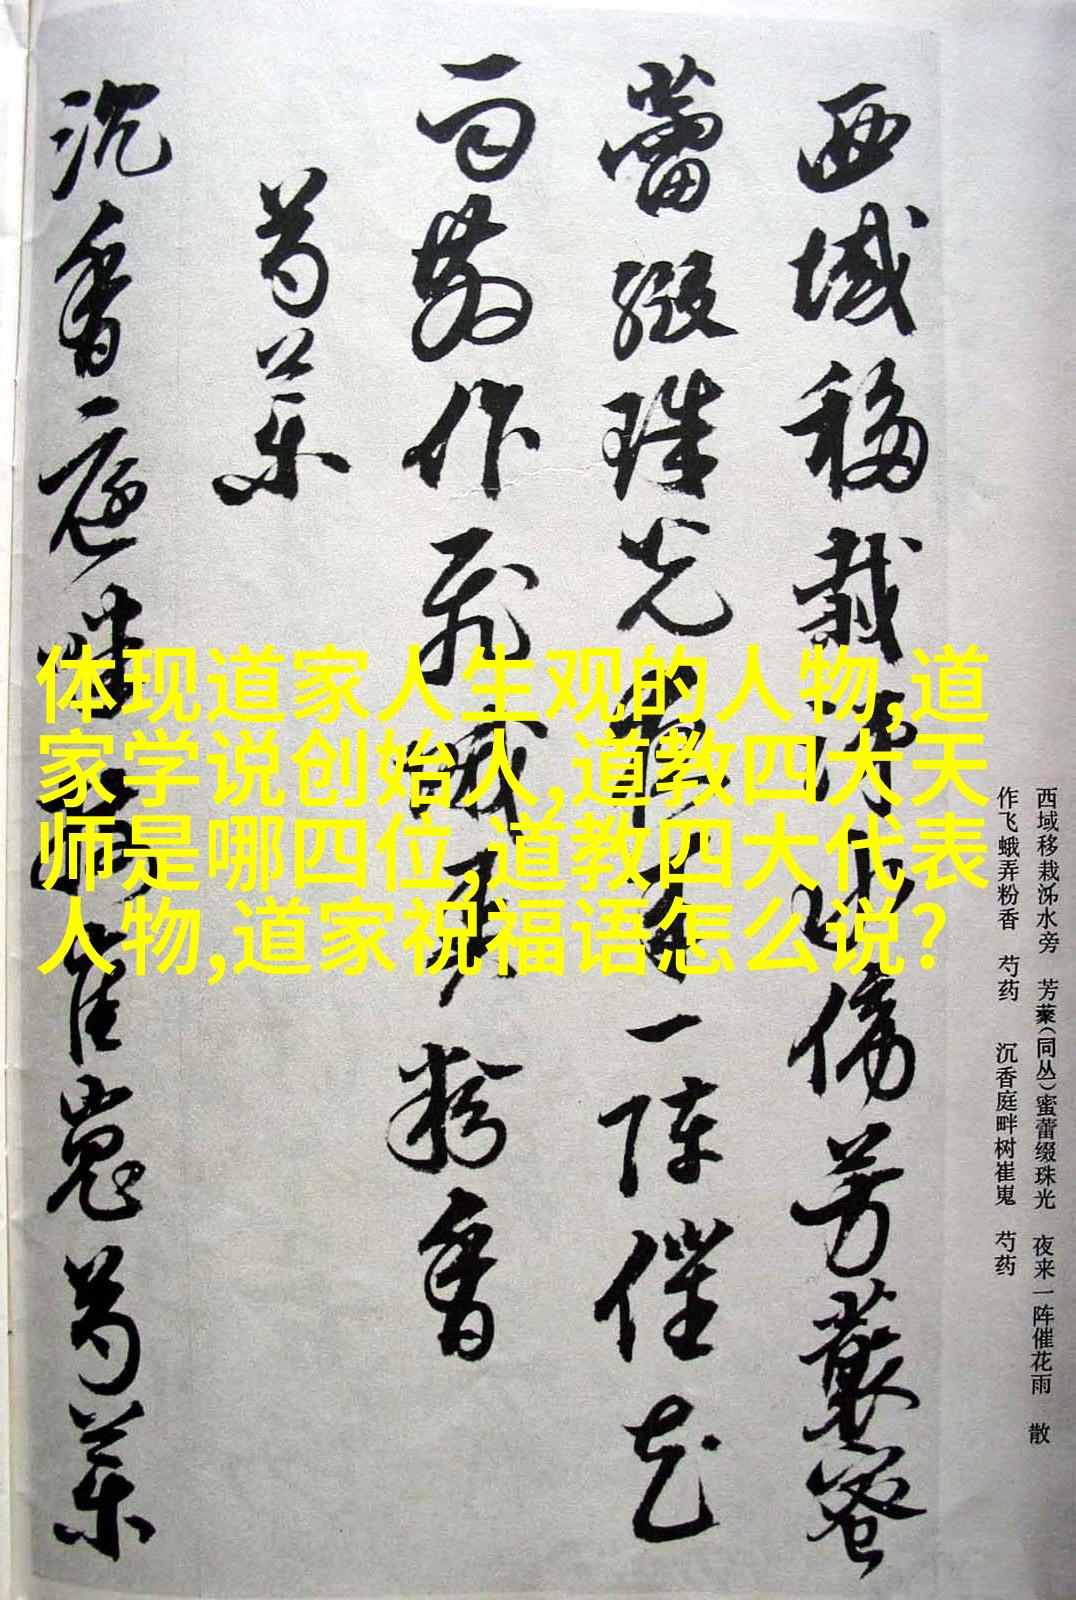 西域移栽泲水傍芳藂蜜
蕾缀珠光夜来一阵催花
雨散作飞蛾弄粉香
芍药
沉香庭畔树崔嵬芍药
西域移栽泲水旁　芳藂（同丛）蜜蕾缀珠光　夜来一阵催花雨　散
作飞蛾弄粉香　芍药　沉香庭畔树崔嵬　芍药
体现道家人生观的人物,道
家学说创始人,道教四大天
师是哪四位,道教四大代表
人物,道家祝福语怎么说?